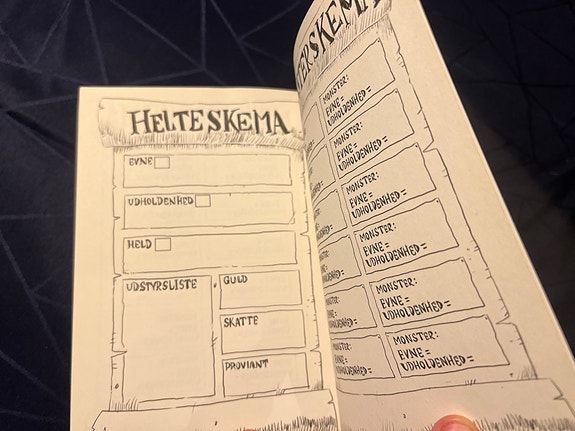 HELTESKEMA
EVNE
UDHOLDENHED
HELD
UDSTYRSLISTE
GULD
SKATTE
PROVIANT
MONSTER:
EVNE =
UDHOLDENHED=
MONSTER:
EVNE =
UDHOLDENHED=
MONSTER:
EVNE =
UDHOLDENHED=
MONSTER:
EVNE =
UDHOLDENHED=
MONSTER:
EVNE =
UDHOLDENHED=
MONSTER:
EVNE =
UDHOLDENHED=